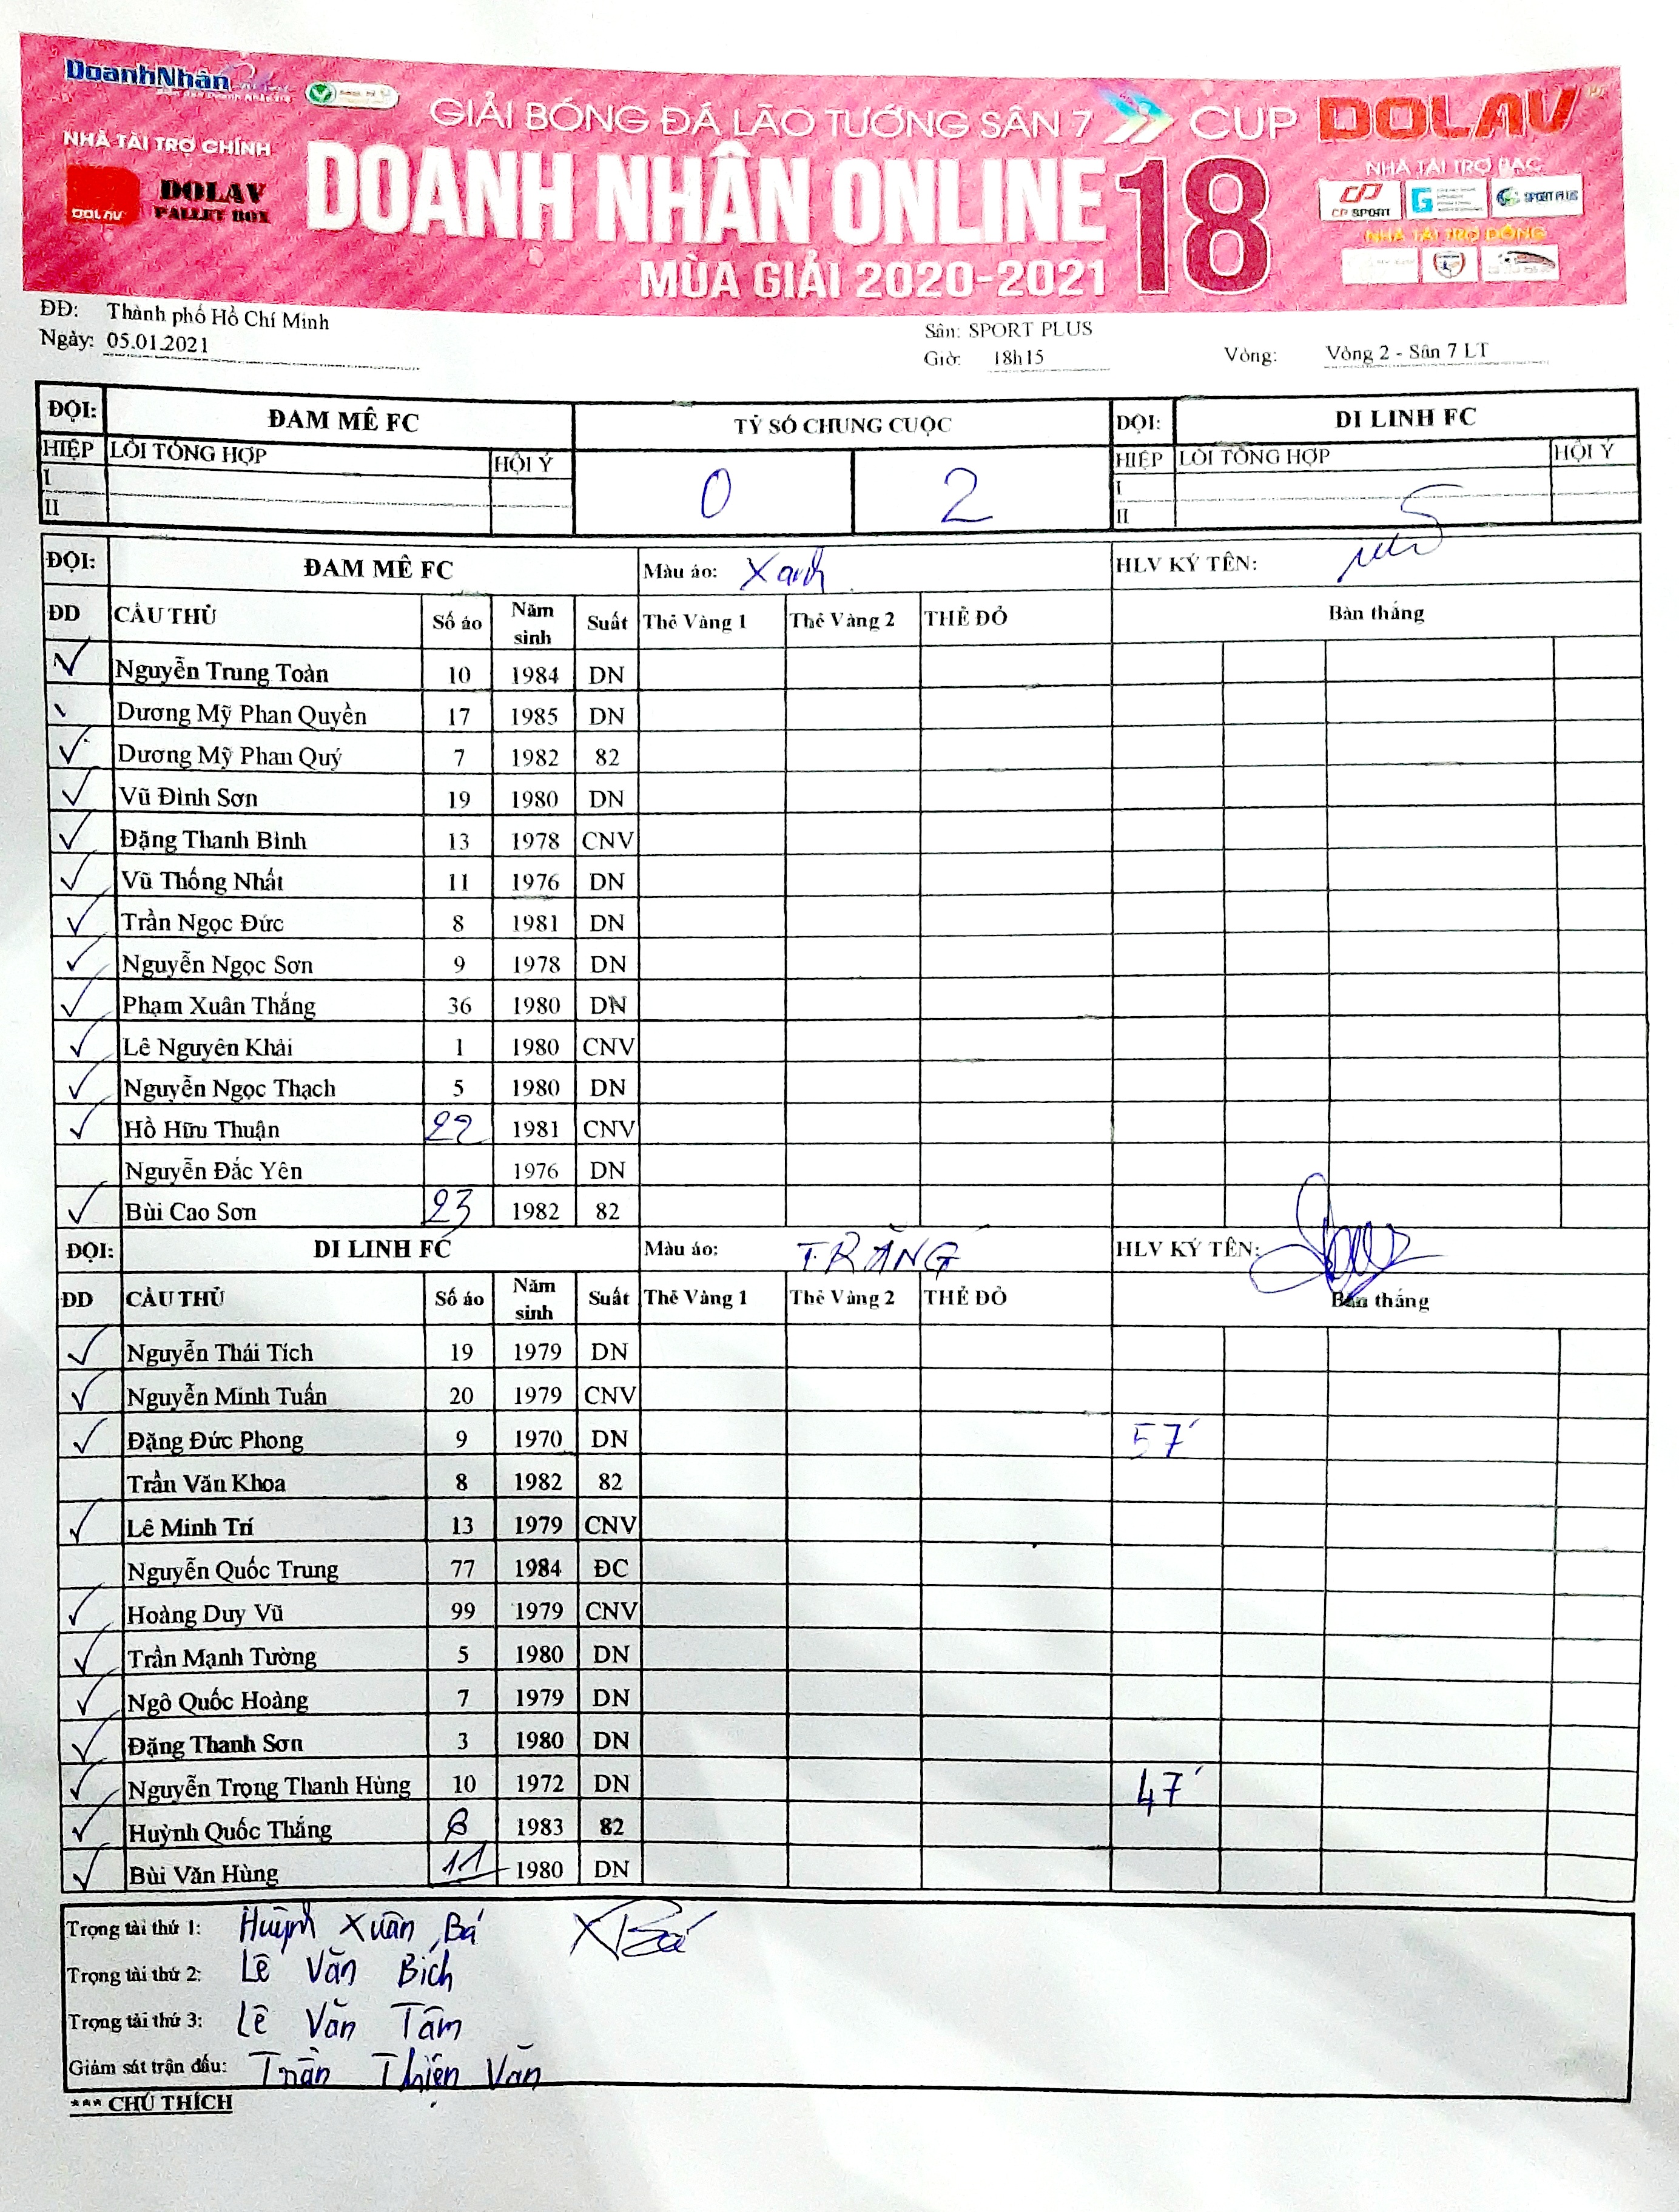 DoanhNhân
GIẢI BÓNG ĐÁ LÃO TƯỚNG SÂN 7 CUP DOLAV
NHÀ TÀI TRỢ CHÍNH
DOANH NHÂN ONLINE 18
DOLAV
DOLAV
PALLET BOX
NHÀ TÀI TRỢ BẠC
CP SPORT
SPORT PLUS
NHÀ TÀI TRỢ ĐỒNG
MÙA GIẢI 2020-2021
ĐĐ: Thành phố Hồ Chí Minh
Sân: SPORT PLUS
Ngày: 05.01.2021
Giờ: 18h15 Vòng: Vòng 2 - Sân 7 LT
ĐỘI: ĐAM MÊ FC TỶ SỐ CHUNG CUỘC ĐỘI: DI LINH FC
HIỆP LỖI TỔNG HỢP HỘI Ý 0 2 HIỆP LỖI TỔNG HỢP HỘI Ý
I I
II II
ĐỘI: ĐAM MÊ FC Màu áo: Xanh HLV KÝ TÊN:
ĐD CẦU THỦ Số áo Năm sinh Suất Thẻ Vàng 1 Thẻ Vàng 2 THẺ ĐỎ Bàn thắng
Nguyễn Trung Toàn 10 1984 DN
Dương Mỹ Phan Quyền 17 1985 DN
Dương Mỹ Phan Quý 7 1982 82
Vũ Đình Sơn 19 1980 DN
Đặng Thanh Bình 13 1978 CNV
Vũ Thống Nhất 11 1976 DN
Trần Ngọc Đức 8 1981 DN
Nguyễn Ngọc Sơn 9 1978 DN
Phạm Xuân Thắng 36 1980 DN
Lê Nguyên Khải 1 1980 CNV
Nguyễn Ngọc Thạch 5 1980 DN
Hồ Hữu Thuận 22 1981 CNV
Nguyễn Đắc Yên 1976 DN
Bùi Cao Sơn 23 1982 82
ĐỘI: DI LINH FC Màu áo: TRẮNG HLV KÝ TÊN:
ĐD CẦU THỦ Số áo Năm sinh Suất Thẻ Vàng 1 Thẻ Vàng 2 THẺ ĐỎ Bàn thắng
Nguyễn Thái Tích 19 1979 DN
Nguyễn Minh Tuấn 20 1979 CNV
Đặng Đức Phong 9 1970 DN 57'
Trần Văn Khoa 8 1982 82
Lê Minh Trí 13 1979 CNV
Nguyễn Quốc Trung 77 1984 ĐC
Hoàng Duy Vũ 99 1979 CNV
Trần Mạnh Tường 5 1980 DN
Ngô Quốc Hoàng 7 1979 DN
Đặng Thanh Sơn 3 1980 DN
Nguyễn Trọng Thanh Hùng 10 1972 DN 47'
Huỳnh Quốc Thắng 8 1983 82
Bùi Văn Hùng 11 1980 DN
Trọng tài thứ 1: Huỳnh Xuân Bá XBá
Trọng tài thứ 2: Lê Văn Bích
Trọng tài thứ 3: Lê Văn Tâm
Giám sát trận đấu: Trần Thiện Văn
*** CHÚ THÍCH